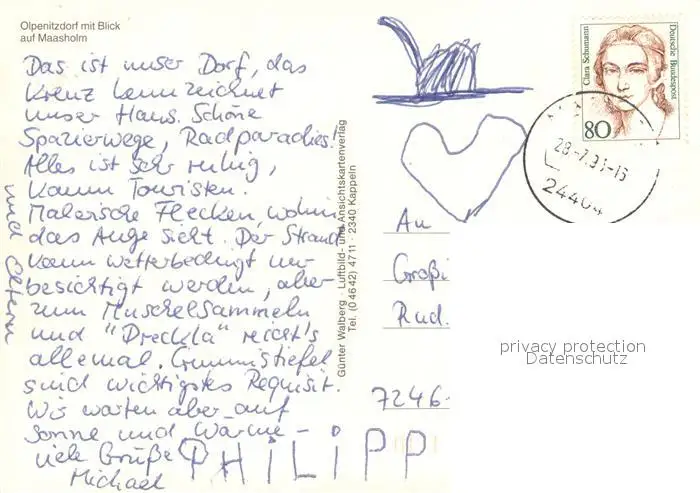 Olpenitzdorf mit Blick
auf Maasholm
Das ist unser Dorf, das
Kreuz kennzeichnet
unser Haus. Schöne
Spazierwege, Radparadies!
Alles ist sehr ruhig,
kaum Touristen.
Malerische Flecken, wohin
das Auge sieht. Der Strand
kann wetterbedingt nur
besichtigt werden, aber
zum Muschelsammeln
und "Dreckla" reicht's
allemal. Gummistiefel
sind wichtigstes Requisit.
Wir warten aber auf
Sonne und Wärme –
viele Grüße
Michael
PHiLiPP
und Eltern
Günter Walberg · Luftbild- und Ansichtskartenverlag
Tel. (0 46 42) 47 11 · 2340 Kappeln
Clara Schumann
Deutsche Bundespost
80
24404
An
Großi
Rud.
7246
privacy protection
Datenschutz